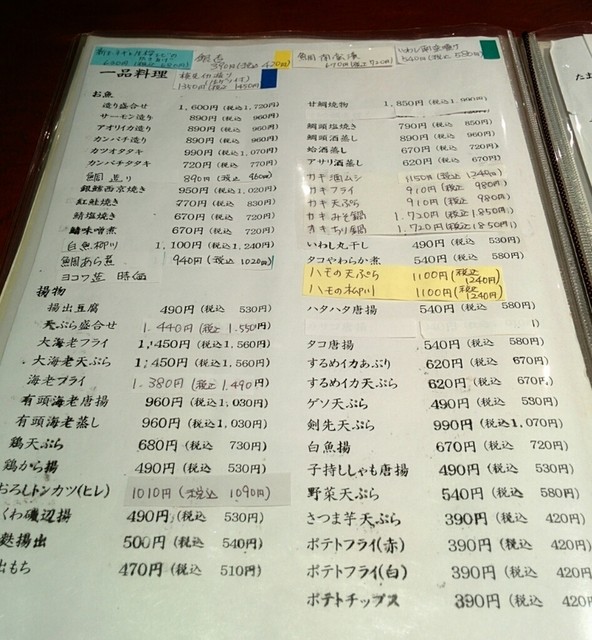 鯛南蛮漬
670円(税込720円)
いわし南蛮漬け
540円(税込580円)
390円(税込420円)
1350円(税込1450円)
一品料理
お魚
造り盛合せ 1,600円(税込1,720円)
サーモン造り 890円(税込 960円)
アオリイカ造り 890円(税込 960円)
カンパチ造り 890円(税込 960円)
カツオタタキ 990円(税込1,070円)
カンパチタタキ 720円(税込 770円)
鯛造り 890円(税込 960円)
銀鱈西京焼き 950円(税込1,020円)
紅鮭焼き 770円(税込 830円)
鯖塩焼き 670円(税込 720円)
鯖味噌煮 670円(税込 720円)
白魚柳川 1,100円(税込1,240円)
鯛あら煮 940円(税込1020円)
ヨコワ造 時価
揚物
揚出豆腐 490円(税込 530円)
天ぷら盛合せ 1,440円(税込1,550円)
大海老フライ 1,450円(税込1,560円)
大海老天ぷら 1,450円(税込1,560円)
海老フライ 1,380円(税込1,490円)
有頭海老唐揚 960円(税込1,030円)
有頭海老蒸し 960円(税込1,030円)
鶏天ぷら 680円(税込 730円)
鶏から揚 490円(税込 530円)
おろしトンカツ(ヒレ) 1010円(税込 1090円)
くわ磯辺揚 490円(税込 530円)
麩揚出 500円(税込 540円)
出もち 470円(税込 510円)
甘鯛焼物 1,850円(税込1,990円)
鯛頭塩焼き 790円(税込 850円)
鯛頭酒蒸し 890円(税込 960円)
蛤酒蒸し 670円(税込 720円)
アサリ酒蒸し 620円(税込 670円)
カキ酒ムシ 1150円(税込1240円)
カキフライ 910円(税込 980円)
カキ天ぷら 910円(税込 980円)
カキみそ鍋 1,720円(税込1,850円)
カキちり鍋 1,720円(税込1,850円)
いわし丸干し 490円(税込 530円)
タコやわらか煮 540円(税込 580円)
ハモの天ぷら 1100円(税込1240円)
ハモの柳川 1100円(税込1240円)
ハタハタ唐揚 540円(税込 580円)
タコ唐揚 540円(税込 580円)
するめイカあぶり 620円(税込 670円)
するめイカ天ぷら 620円(税込 670円)
ゲソ天ぷら 490円(税込 530円)
剣先天ぷら 990円(税込1,070円)
白魚揚 670円(税込 720円)
子持ししゃも唐揚 490円(税込 530円)
野菜天ぷら 540円(税込 580円)
さつま芋天ぷら 390円(税込 420円)
ポテトフライ(赤) 390円(税込 420円)
ポテトフライ(白) 390円(税込 420円)
ポテトチップス 390円(税込 420円)
たま